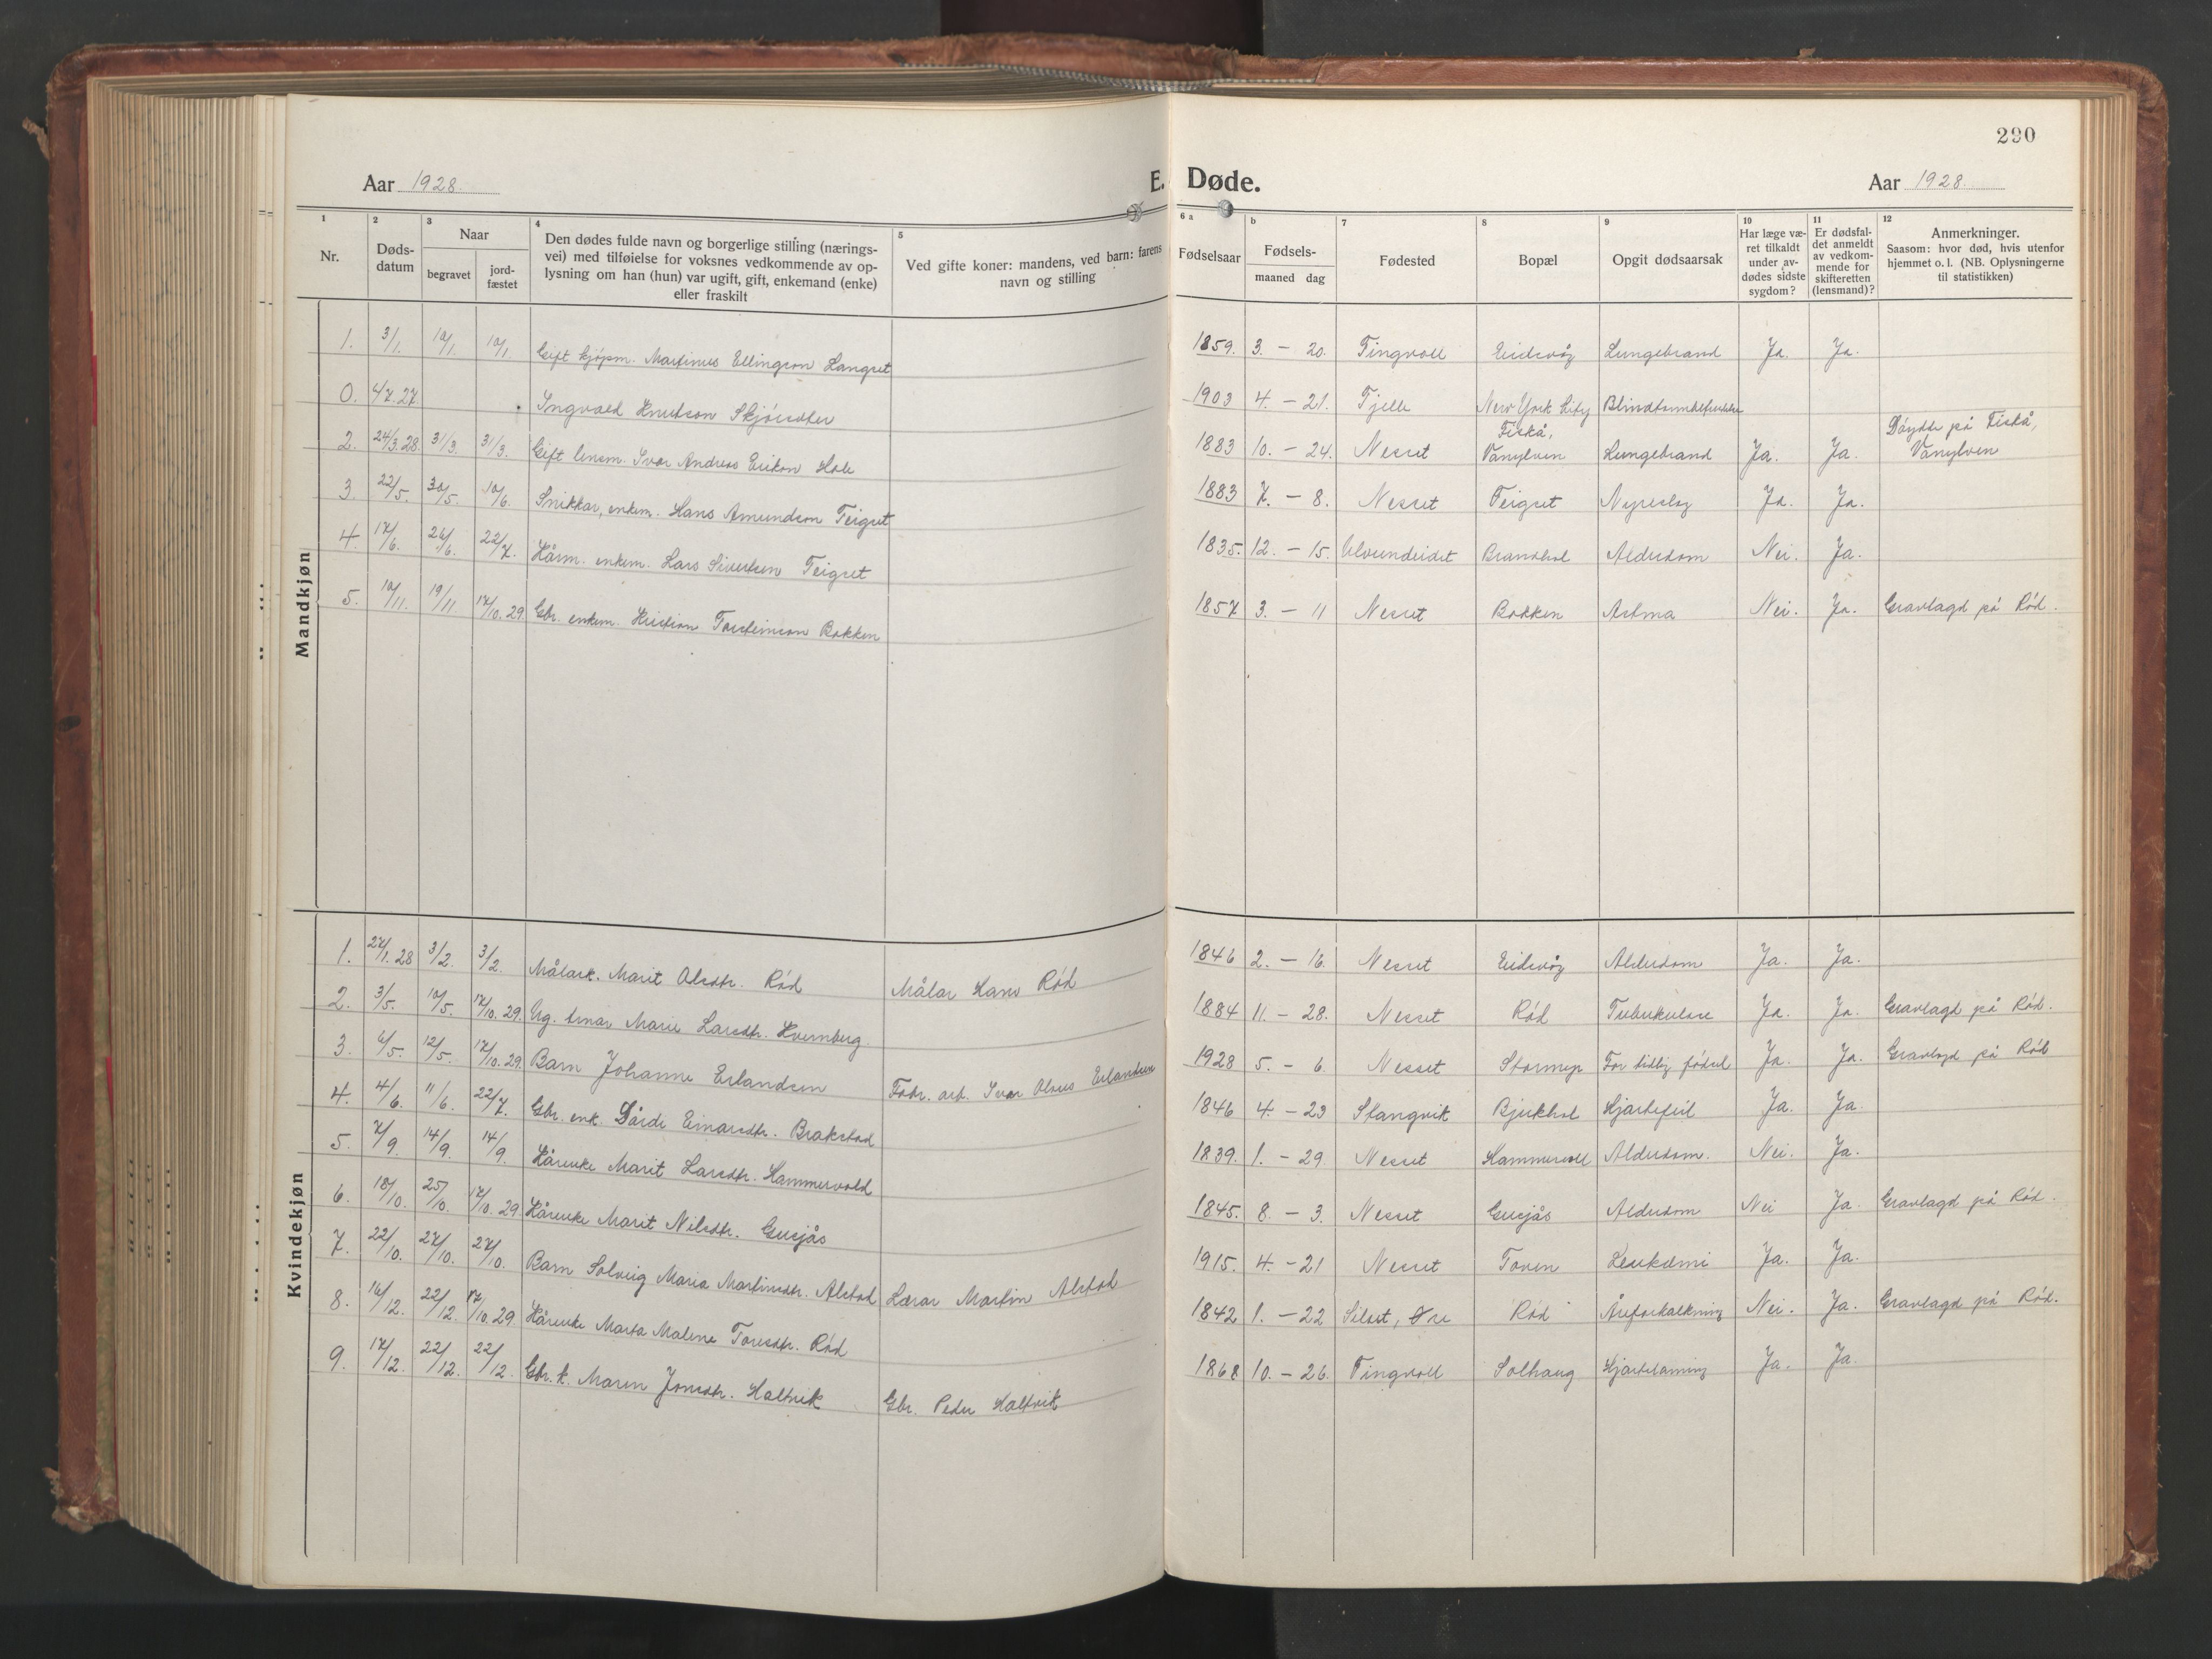 290
Aar 1928.
E. Døde.
Aar 1928.
1 2 3 4 5 6 a b 7 8 9 10 11 12
Nr.
Døds-
datum
Naar
begravet
jord-
fæstet
Den dødes fulde navn og borgerlige stilling (nærings-
vei) med tilføielse for voksnes vedkommende av op-
lysning om han (hun) var ugift, gift, enkemand (enke)
eller fraskilt
Ved gifte koner: mandens, ved barn: farens
navn og stilling
Fødselsaar
Fødsels-
maaned dag
Fødested
Bopæl
Opgit dødsaarsak
Har læge væ-
ret tilkaldt
under av-
dødes sidste
sygdom?
Er dødsfal-
det anmeldt
av vedkom-
mende for
skifteretten
(lensmand)?
Anmerkninger.
Saasom: hvor død, hvis utenfor
hjemmet o. l. (NB. Oplysningerne
til statistikken)
Mandkjøn
1. 3/1. 10/1. 10/1. Gift kjøpm. Martinus Ellingson Langset 1859. 3. – 20. Tingvoll Eidsvåg Lungebrand Ja. Ja.
0. 4/7.27 Ingvald Knutson Skjørsæter 1903 4. – 21. Tjelle New York City
2. 24/3.28. 31/3. 31/3. Gift lensm. Ivar Andreas Erikson Hole 1883 10. – 24. Nesset Fiskå, Vanylven Lungebrand Ja. Ja. Døydde på Fiskå, Vanylven
3. 22/5. 30/5. 10/6. Snikkar, enkem. Hans Amundson Teigset 1883 7. – 8. Nesset Teigset Nyreslag Ja. Ja.
4. 17/6. 26/6. 22/7. Kårm. enkem. Lars Sivertsen Teigset 1835. 12. – 15. Ulvundeidet Brandhol Alderdom Nei. Ja.
5. 10/11. 19/11 17/10.29. Gbr. enkem. Kristian Torsteinson Bakken 1857 3. – 11 Nesset Bakken Astma Nei. Ja. Gravlagd på Rød.
Kvindekjøn
1. 27/1.28 3/2. 3/2. Målark. Marit Olsdtr. Rød Målar Hans Rød 1846 2. – 16. Nesset Eidsvåg Alderdom Ja. Ja.
2. 3/5. 10/5. 17/10.29. Ug. tenar Marie Larsdtr. Kvernberg. 1884 11. – 28. Nesset Rød Tuberkulose Ja. Ja. Gravlagd på Rød.
3. 6/5. 12/5. 17/10.29. Barn Johanne Erlandsen Fabr. arb. Ivar Olaus Erlandsen 1928 5. – 6. Nesset Stormyr For tidlig fødsel Ja. Ja. Gravlagd på Rød
4. 4/6. 11/6. 22/7. Gbr. enk. Dårdi Einarsdtr. Brakstad 1846 4. – 23 Stangvik Bjørkhol Hjartefeil Ja. Ja.
5. 7/9. 14/9. 14/9. Kårenke Marit Larsdtr. Hammervold 1839. 1. – 29. Nesset Hammervoll Alderdom. Nei. Ja.
6. 18/10. 25/10. 17/10.29. Kårenke Marit Nilsdtr. Gusjås 1845. 8. – 3. Nesset Gusjås Alderdom Nei Ja. Gravlagd på Rød.
7. 22/10. 27/10. 27/10. Barn Solveig Maria Martinsdtr. Alstad Lærar Martin Alstad 1915. 4. – 21 Nesset Toven Leukæmi Ja. Ja.
8. 16/12. 22/12. 17/10.29. Kårenke Marta Malene Toresdtr. Rød 1842 1. – 22 Silset, Øre Rød Åreforkalkning Nei. Ja. Gravlagd på Rød.
9. 17/12. 22/12. 22/12. Gbr. k. Maren Jonsdtr. Haltvik Gbr. Peder Haltvik 1868 10. – 26. Tingvoll Solhaug Hjartelaming Ja. Ja.